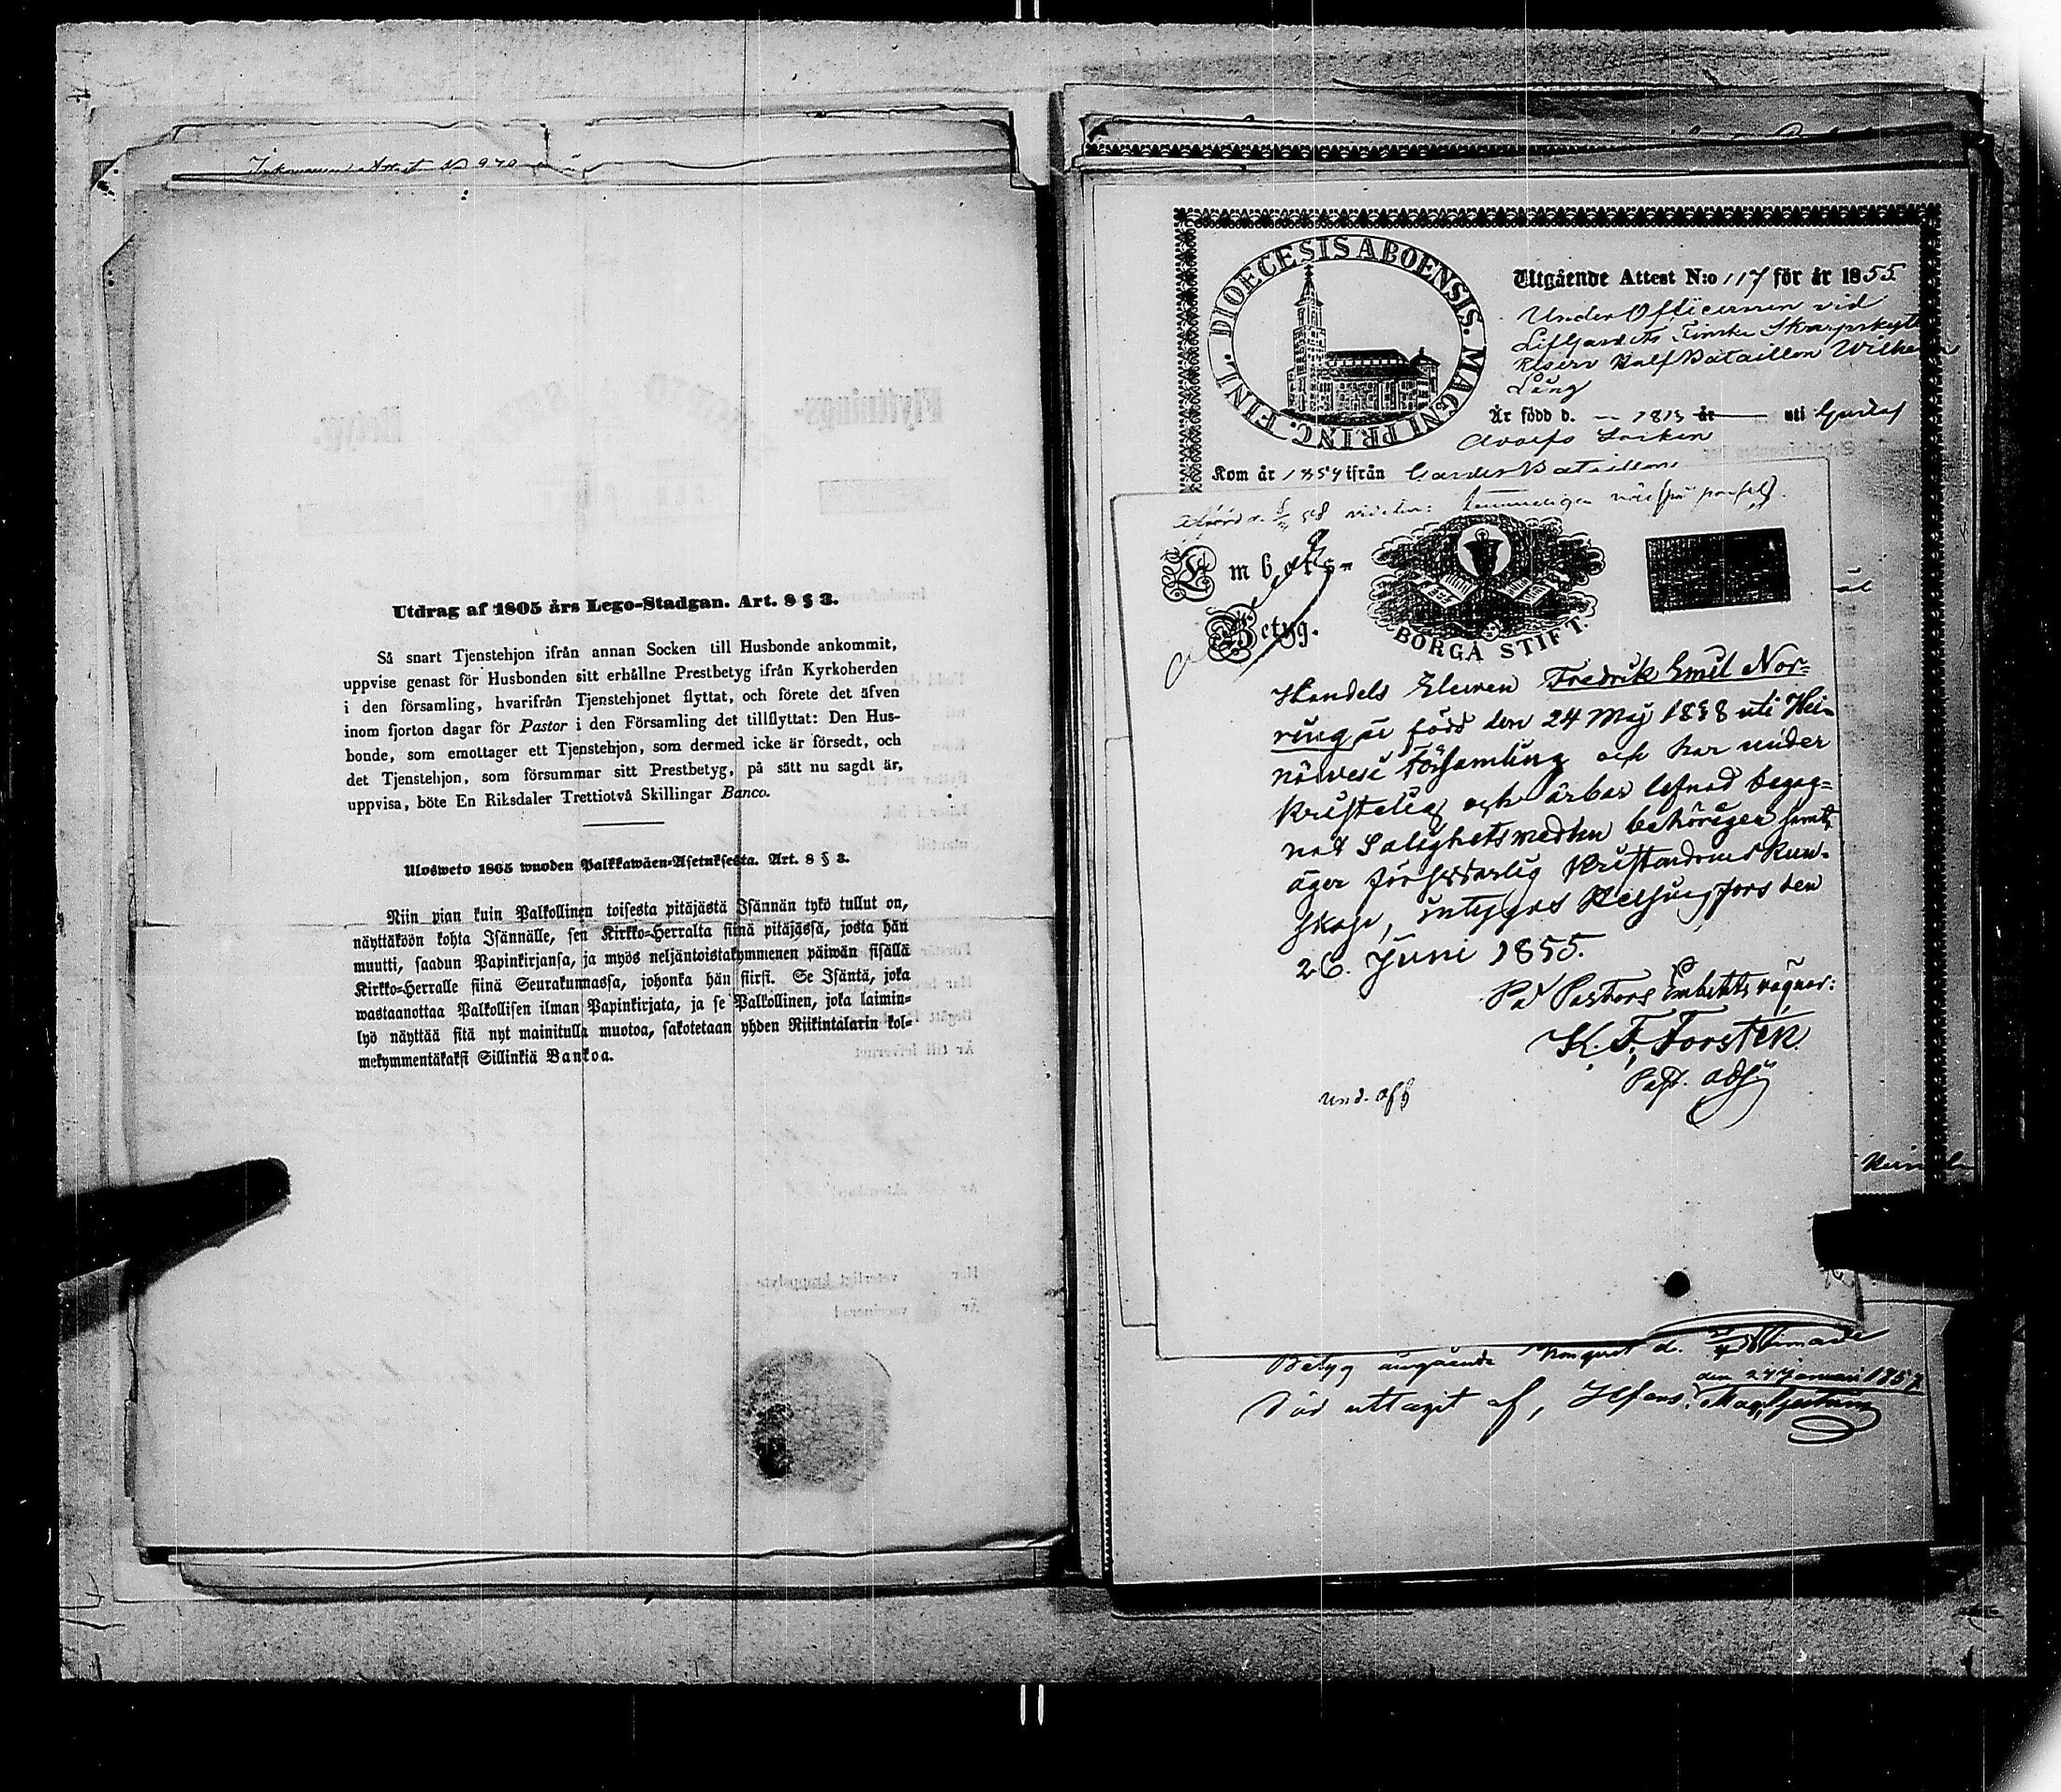 Inkommen Attest No 970
Utdrag af 1805 års Lego-Stadgan. Art. 8 § 3.
Så snart Tjenstehjon ifrån annan Socken till Husbonde ankommit,
uppvise genast för Husbonden sitt erhållne Prestbetyg ifrån Kyrkoherden
i den församling, hvarifrån Tjenstehjonet flyttat, och förete det äfven
inom fjorton dagar för Pastor i den Församling det tillflyttat: Den Hus-
bonde, som emottager ett Tjenstehjon, som dermed icke är försedt, och
det Tjenstehjon, som försummar sitt Prestbetyg, på sätt nu sagdt är,
uppvisa, böte En Riksdaler Trettiotvå Skillingar Banco.
Ulosweto 1805 wuoden Palkkawäen-Asetuksesta. Art. 8 § 3.
Niin pian kuin Palkollinen toisesta pitäjästä Isännän tykö tullut on,
näyttäköön kohta Isännälle, sen Kirkko-Herralta siinä pitäjässä, josta hän
muutti, saadun Papinkirjansa, ja myös neljäntoistakymmenen päiwän sisällä
Kirkko-Herralle siinä Seurakunnassa, johonka hän siirsi. Se Isäntä, joka
wastaanottaa Palkollisen ilman Papinkirjata, ja se Palkollinen, joka laimin-
lyö näyttää sitä nyt mainitulla muotoa, sakotetaan yhden Riikintalarin kol-
mekymmentäkaksi Sillinkiä Bankoa.
FINL. DIOECESIS ABOENSIS. MAGNI PRINC.
Utgående Attest N:o 117 för år 1855
Under Officeren vid
LifGardets Finska Skarpskytte
Reserv Half Bataillon Wilhelm
Lång
Är född d. — 1813 år uti Gustaf
Adolfs Socken
Kom år 1854 ifrån Gardes Bataillon
Embets-
Betyg.
BORGÅ STIFT.
Handels Eleven Fredrik Emil Nor-
ring är född den 24 Maj 1838 uti Hei-
näwesi Församling och har under
kristelig och ärbar lefnad begag-
nat Salighetsmedlen behörigen samt
äger försvarlig Kristendoms kun-
skap, intygas Helsingfors den
26. Juni 1855.
På Pastors Embetets vägnar:
K. F. Forstén
Past. adj.
und. aff
Betyg angående
den 24 Januari 1857
uttagit af, Hfors.